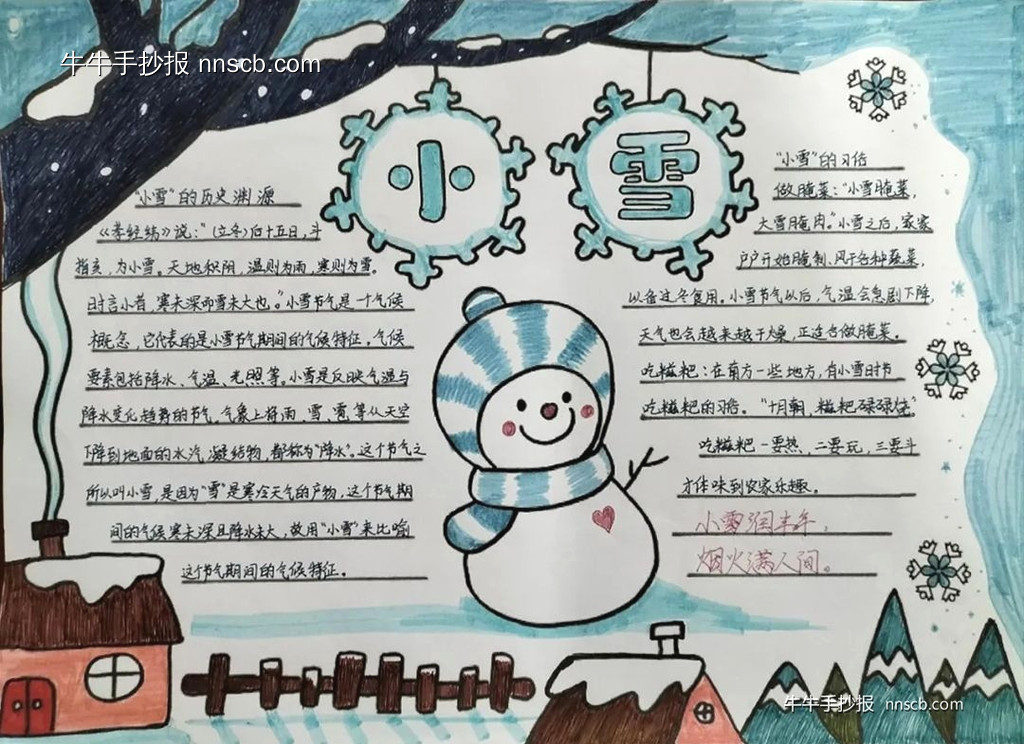 牛牛手抄报 nnscb.com
小雪
"小雪"的历史渊源
《孝经纬》说："(立冬)后十五日，斗
指亥，为小雪。天地积阴，温则为雨，寒则为雪。
时言小者，寒未深而雪未大也。"小雪节气是一个气候
概念，它代表的是小雪节气期间的气候特征。气候
要素包括降水、气温、光照等。小雪是反映气温与
降水变化趋势的节气。气象上将雨、雪、雹等从天空
下降到地面的水汽凝结物，都称为"降水"。这个节气之
所以叫小雪，是因为"雪"是寒冷天气的产物，这个节气期
间的气候寒未深且降水未大，故用"小雪"来比喻
这个节气期间的气候特征。
"小雪"的习俗
做腌菜："小雪腌菜，
大雪腌肉。"小雪之后，家家
户户开始腌制、风干各种蔬菜，
以备过冬食用。小雪节气以后，气温会急剧下降，
天气也会越来越干燥，正适合做腌菜。
吃糍粑：在南方一些地方，有小雪时节
吃糍粑的习俗。"十月朝，糍粑碌碌烧"
吃糍粑一要热，二要玩，三要斗
才体味到农家乐趣。
小雪润丰年，
烟火满人间。
牛牛手抄报 nnscb.com